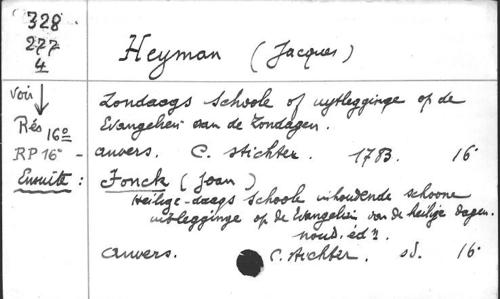 328
277
4
Heyman (Jacques)
voir
Rés 16º
RP 16º -
Ensuite :
Zondaags schoole of uytlegginge op de
Evangelien van de Zondagen.
Anvers. C. Stichter. 1783. 16º
Fonck (Joan)
Heilige-daags schoole inhoudende schoone
uitlegginge op de Evangelien van de heilige dagen.
nouv. éd n.
Anvers. C. Stichter. sd. 16º